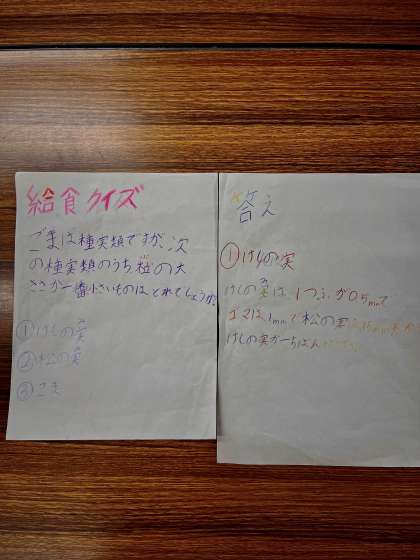 給食クイズ
ごまは種実類ですが、次
の種実類のうち粒の大
きさが一番小さいものはどれでしょうか。
①けしの実
②松の実
③ごま
答え
①けしの実
けしの実は、1つぶが0.5mmで
ゴマは1mmで松の実
けしの実が一ちばん